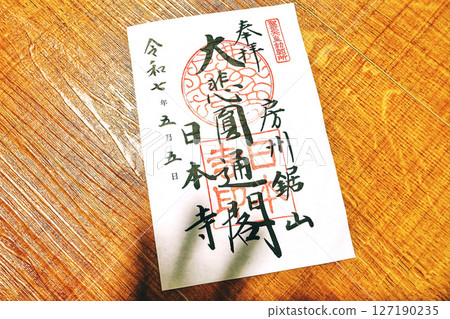 奉拝
房州鋸山
大悲圓通閣
日本寺
令和七年五月五日